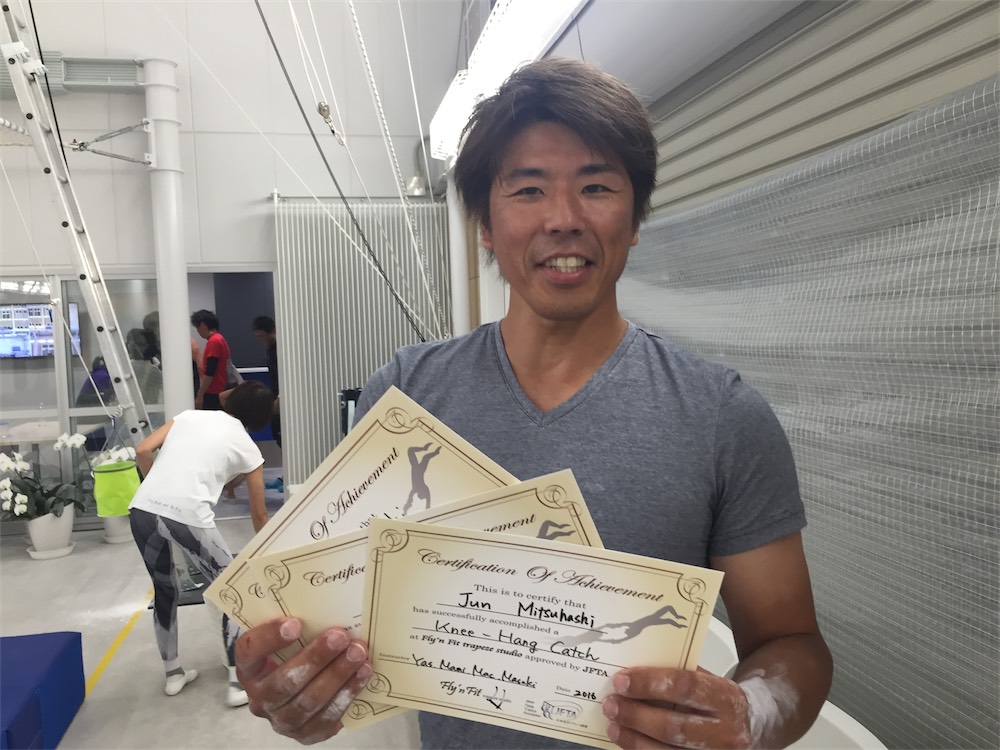 Of Achievement
Certification Of Achievement
This is to certify that
Jun Mitsuhashi
has successfully accomplished a
Knee-Hang Catch
at Fly'n Fit trapeze studio approved by JFTA
Instructor Yas Mami Mac Masaki Date 2016
Fly'n Fit
JFTA